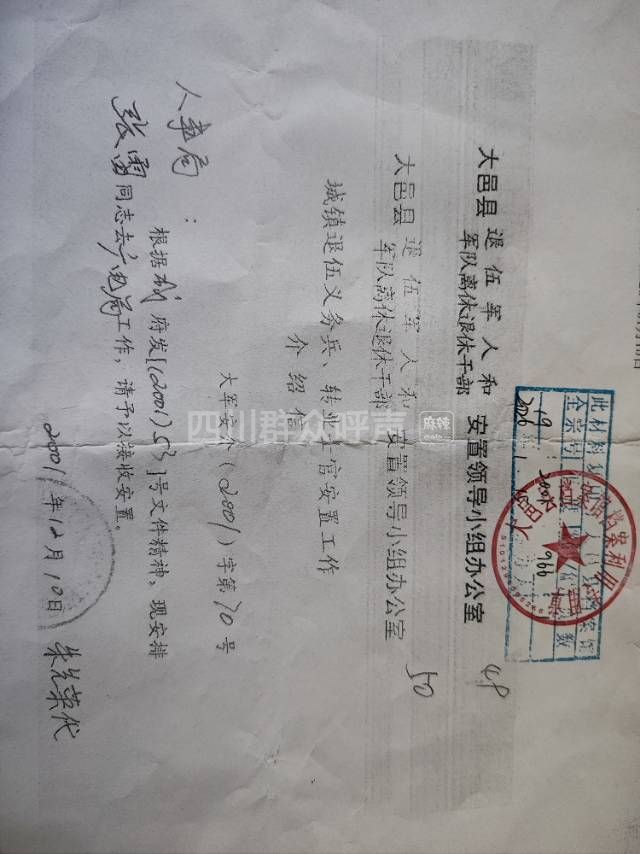 大邑县 退伍军人和
军队离休退休干部 安置领导小组办公室
49
大邑县 退伍军人和
军队离休退休干部 安置领导小组办公室
50
城镇退伍义务兵、转业士官安置工作
介绍信
大军安介(2001)字第70号
人事局：
根据 府发[(2001)53]号文件精神，现安排
张勇同志去广电局工作，请予以接收安置。
2001年12月10日
朱光荣代
此材料
全宗号
19
966
2026 1
四川群众呼声
麻辣